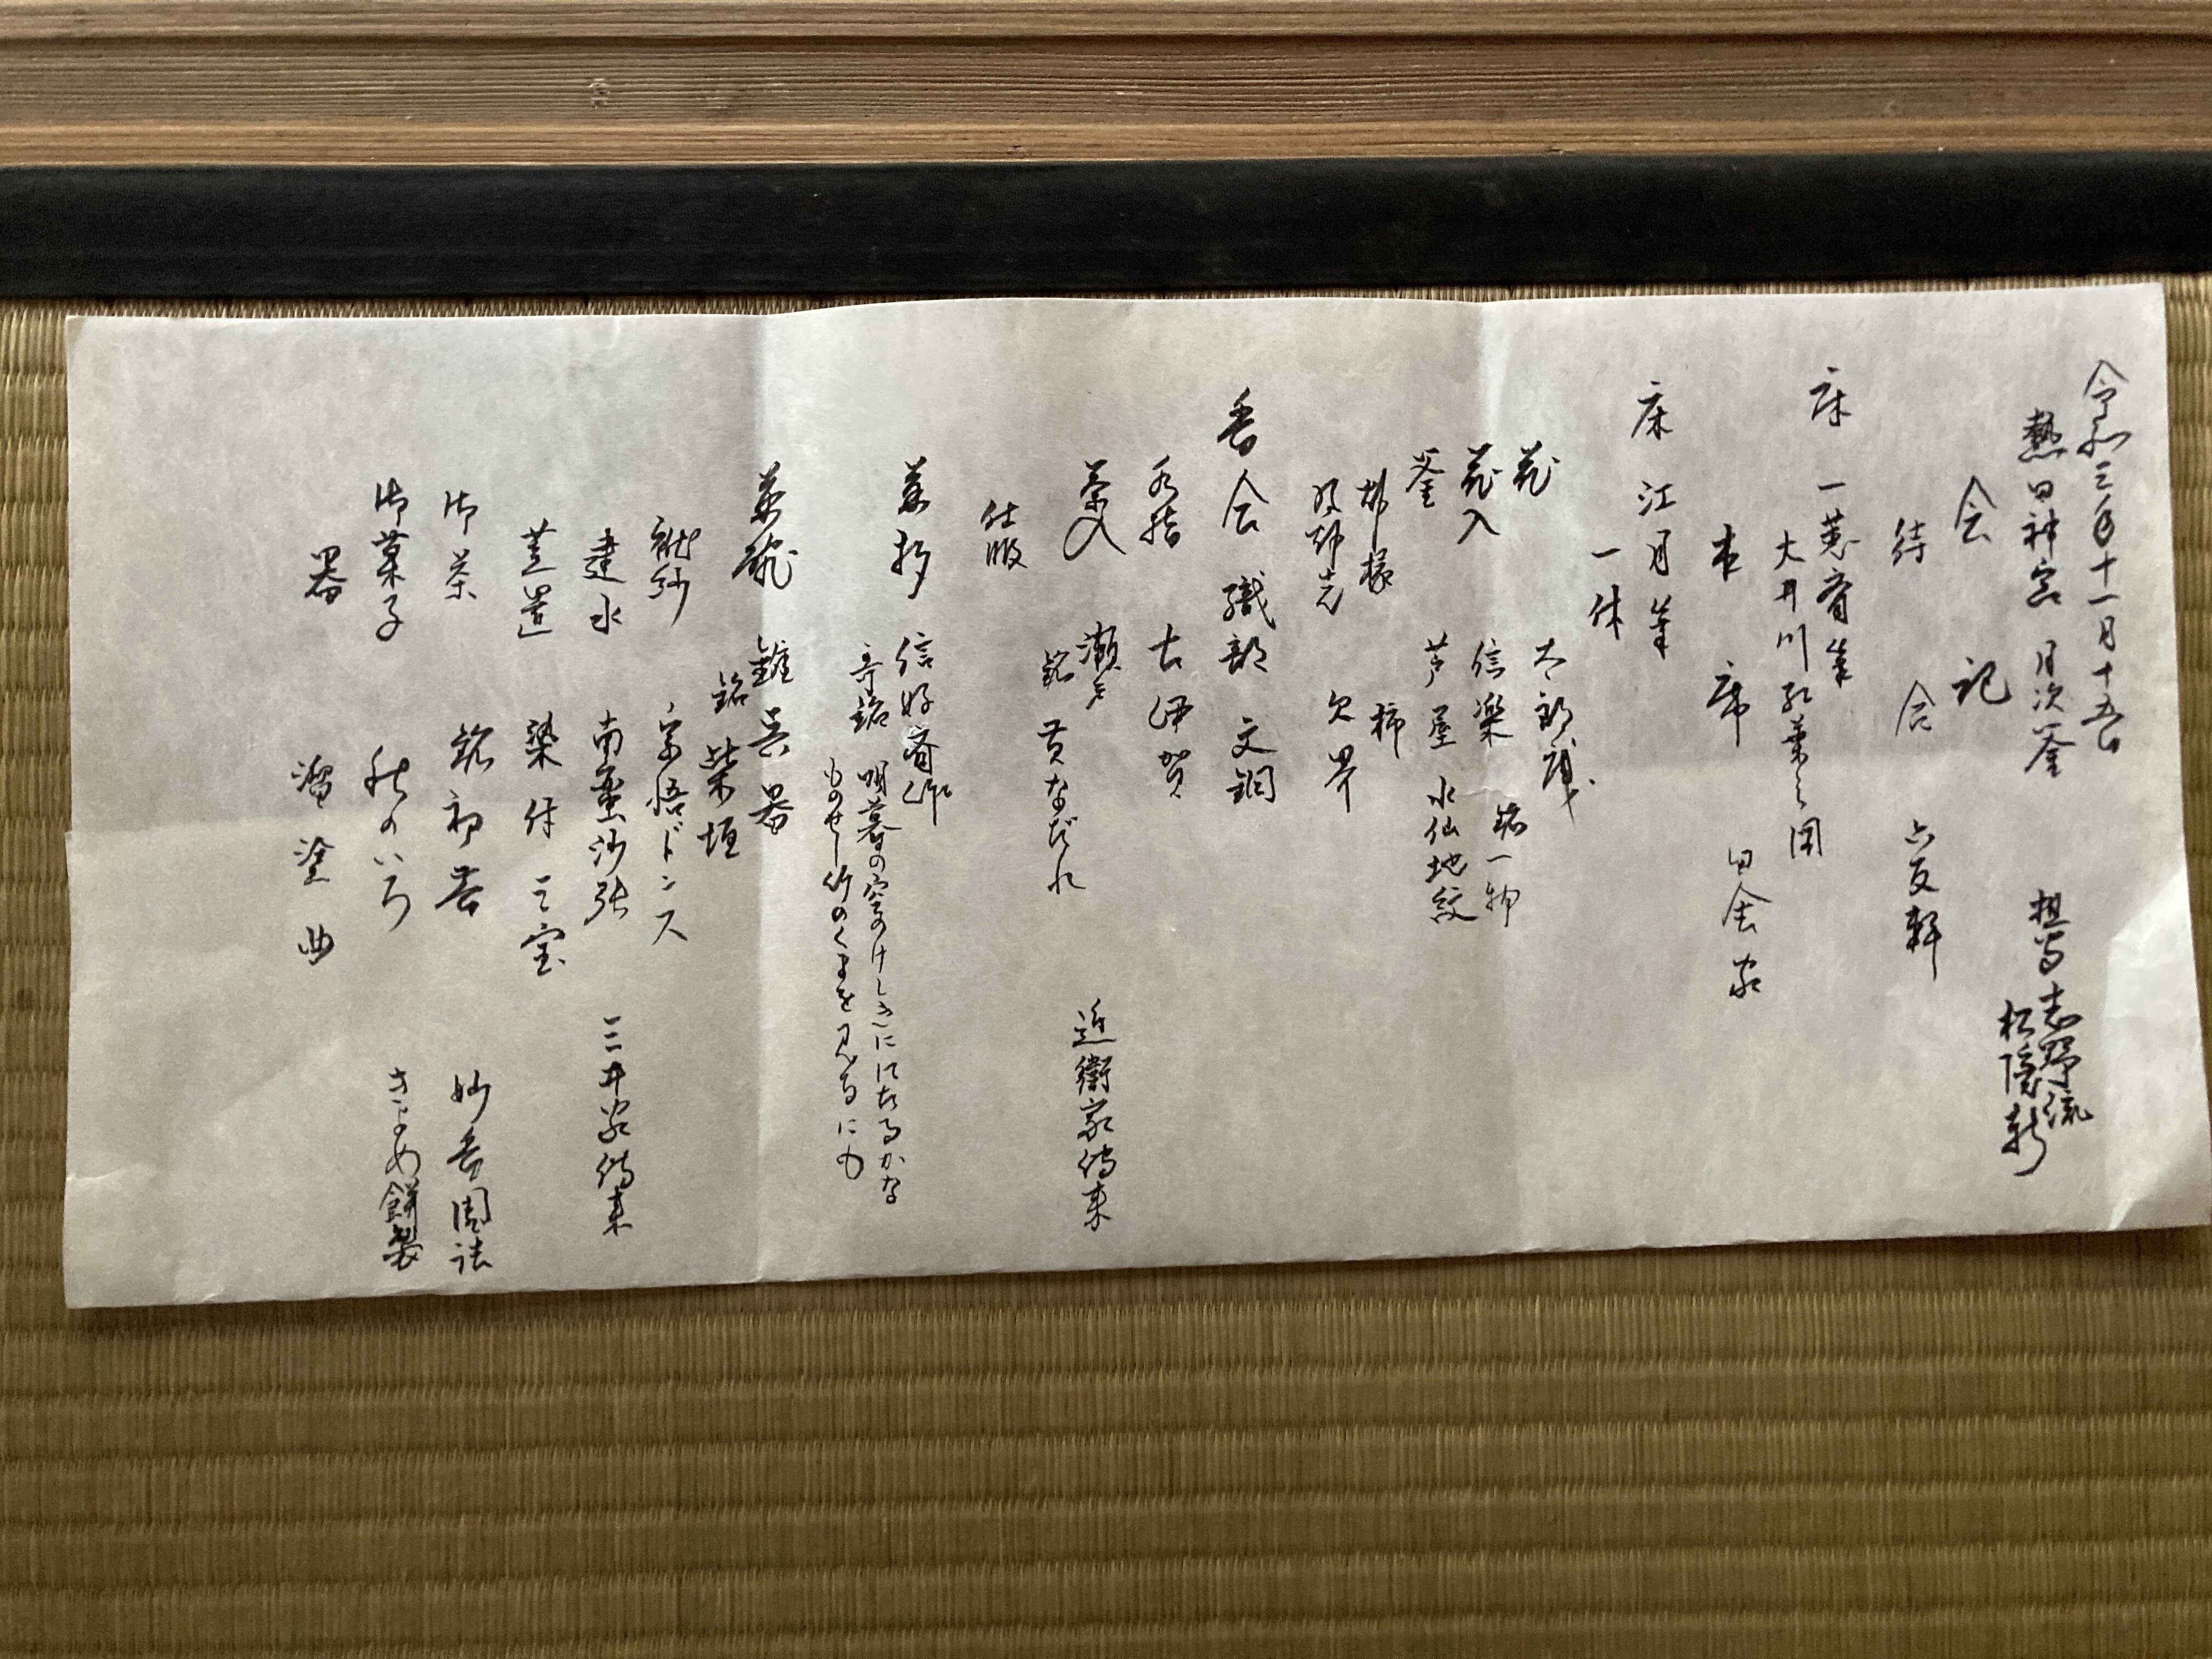 令和三年十一月十五日
熱田神宮 月次釜 担当 志野流
松隠軒
会記
待合 六友軒
床 一燕斎筆
大井川紅葉之図
本席 田舎家
床 江月筆
一休
花 太郎庵
花入 信楽 銘一物
釜 芦屋 水仙地紋
炉縁 柿
風炉先 久畀
香合 織部 文銅
水指 古伊賀
茶入 瀬戸 近衛家伝来
銘 黄なだれ
仕服
茶杓 信好斎作
歌銘 明暮の窓のけしきににたるかな
ものせし竹のくまを見るにも
茶碗 錐呉器
銘 柴垣
袱紗 宗悟ドンス
建水 南蛮沙張 三井家伝来
蓋置 染付 三宝
御茶 銘 初昔 妙香園詰
御菓子 秋のいろ きよめ餅製
器 溜塗 曲